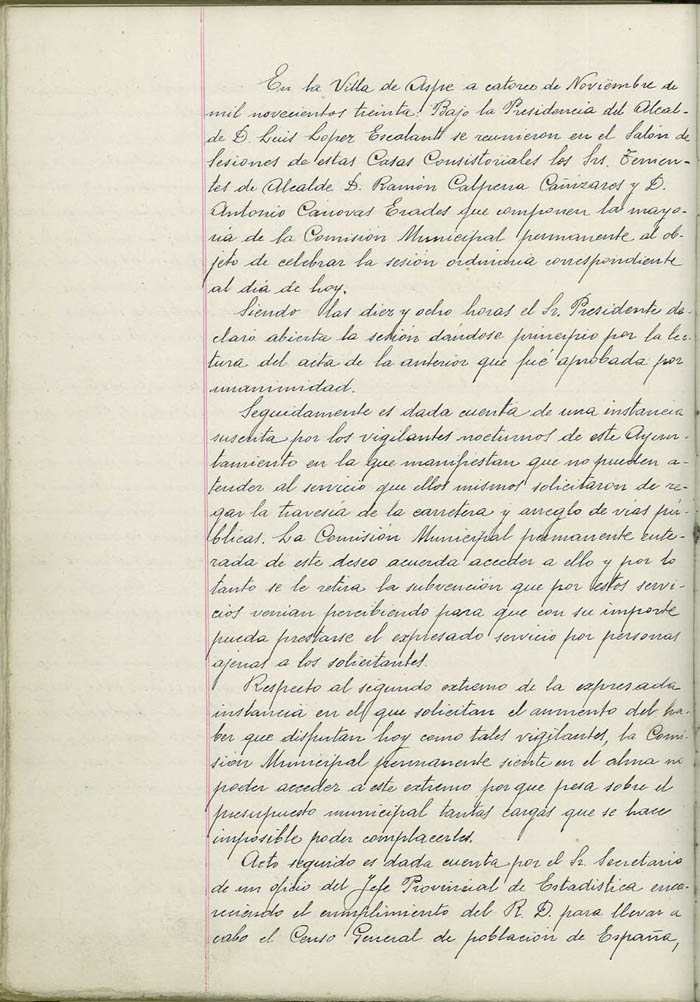 En la Villa de Aspe a catorce de Noviembre de
mil novecientos treinta. Bajo la Presidencia del Alcal-
de D. Luis Lopez Escolant se reunieron en el Salón de
Sesiones de estas Casas Consistoriales los Srs. Tenien-
tes de Alcalde D. Ramón Calpena Cañizares y D.
Antonio Cánovas Erades que componen la mayo-
ría de la Comisión Municipal permanente al ob-
jeto de celebrar la sesión ordinaria correspondiente
al día de hoy.
Siendo las diez y ocho horas el Sr. Presidente de-
claró abierta la sesión dándose principio por la lec-
tura del acta de la anterior que fué aprobada por
unanimidad.
Seguidamente es dada cuenta de una instancia
suscrita por los vigilantes nocturnos de este Ayun-
tamiento en la que manifiestan que no pueden a-
tender al servicio que ellos mismos solicitaron de re-
gar la travesía de la carretera y arreglo de vías pú-
blicas. La Comisión Municipal permanente ente-
rada de este deseo acuerda acceder a ello y por lo
tanto se le retira la subvención que por estos servi-
cios venían percibiendo para que con su importe
pueda prestarse el expresado servicio por personas
ajenas a los solicitantes.
Respecto al segundo extremo de la expresada
instancia en el que solicitan el aumento del ha-
ber que disfrutan hoy como tales vigilantes, la Comi-
sión Municipal permanente siente en el alma no
poder acceder a este extremo porque pesa sobre el
presupuesto municipal tantas cargas que se hace
imposible poder complacerles.
Acto seguido es dada cuenta por el Sr. Secretario
de un oficio del Jefe Provincial de Estadística enca-
reciendo el cumplimiento del R. D. para llevar a
cabo el Censo General de población de España,